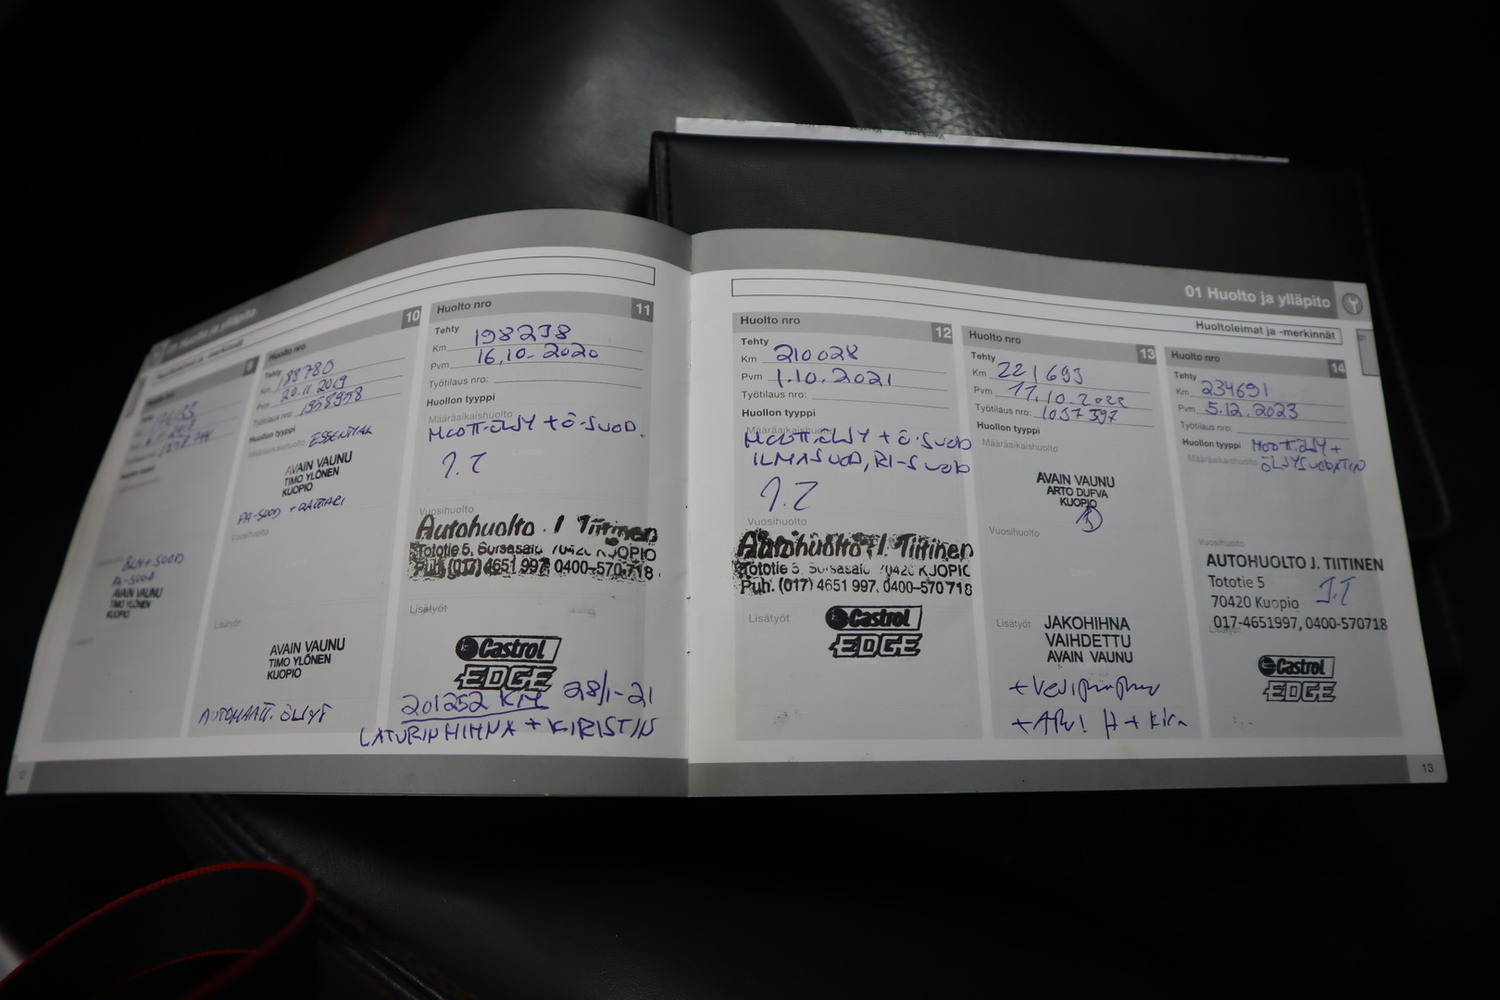 01 Huolto ja ylläpito
9
BLM+SUOD
PA-SUOD
AVAIN VAUNU
TIMO YLÖNEN
KUOPIO
Huolto nro 10
Tehty
Km 188780
Pvm 20.11.2019
Työtilaus nro: 1958958
Huollon tyyppi
Määräaikaishuolto
AVAIN VAUNU
TIMO YLÖNEN
KUOPIO
PA-SUOD + RAITTARI
Vuosihuolto
Lisätyöt
AVAIN VAUNU
TIMO YLÖNEN
KUOPIO
AUTOMAATT. ÖLJYT
Huolto nro 11
Tehty
Km 198238
Pvm 16.10.2020
Työtilaus nro:
Huollon tyyppi
Määräaikaishuolto
MOOTT.ÖLJY + Ö-SUOD.
J.T
Autohuolto J Tiitinen
Tototie 5, Sorsasalo 70420 KUOPIO
Puh. (017) 4651 997, 0400-570 718
Lisätyöt
Castrol
EDGE
201252 KM 28/1-21
LATURIN HIHNA + KIRISTIN
01 Huolto ja ylläpito
Huoltoleimat ja -merkinnät
Huolto nro 12
Tehty
Km 210028
Pvm 1.10.2021
Työtilaus nro:
Huollon tyyppi
Määräaikaishuolto
MOOTT.ÖLJY + Ö-SUOD
ILMASUOD, RI-SUOD
J.T
Vuosihuolto
Autohuolto J. Tiitinen
Tototie 5, Sorsasalo 70420 KUOPIO
Puh. (017) 4651 997, 0400-570 718
Lisätyöt
Castrol
EDGE
Huolto nro 13
Tehty
Km 221693
Pvm 11.10.2022
Työtilaus nro: 1057397
Huollon tyyppi
Määräaikaishuolto
AVAIN VAUNU
ARTO DUFVA
KUOPIO
Vuosihuolto
Lisätyöt
JAKOHIHNA
VAIHDETTU
AVAIN VAUNU
+ Vesipumppu
+ Apul H + Kir
Huolto nro 14
Tehty
Km 234691
Pvm 5.12.2023
Työtilaus nro:
Huollon tyyppi MOOTT.ÖLJY +
Määräaikaishuolto ÖLJYSUODATIN
Vuosihuolto
AUTOHUOLTO J. TIITINEN
Tototie 5
70420 Kuopio J.T
017-4651997, 0400-570718
Lisätyöt
Castrol
EDGE
12
13